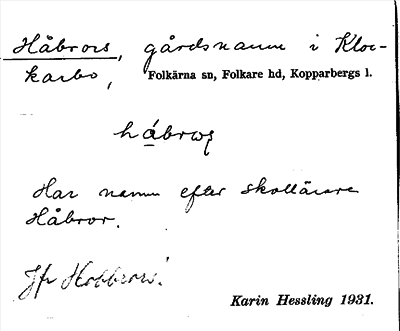 Håbrors, gårdsnamn i Kloc-
karbo, Folkärna sn, Folkare hd, Kopparbergs l.
Har namn efter skollärare
Håbror.
Jfr Hobbrors!
Karin Hessling 1931.